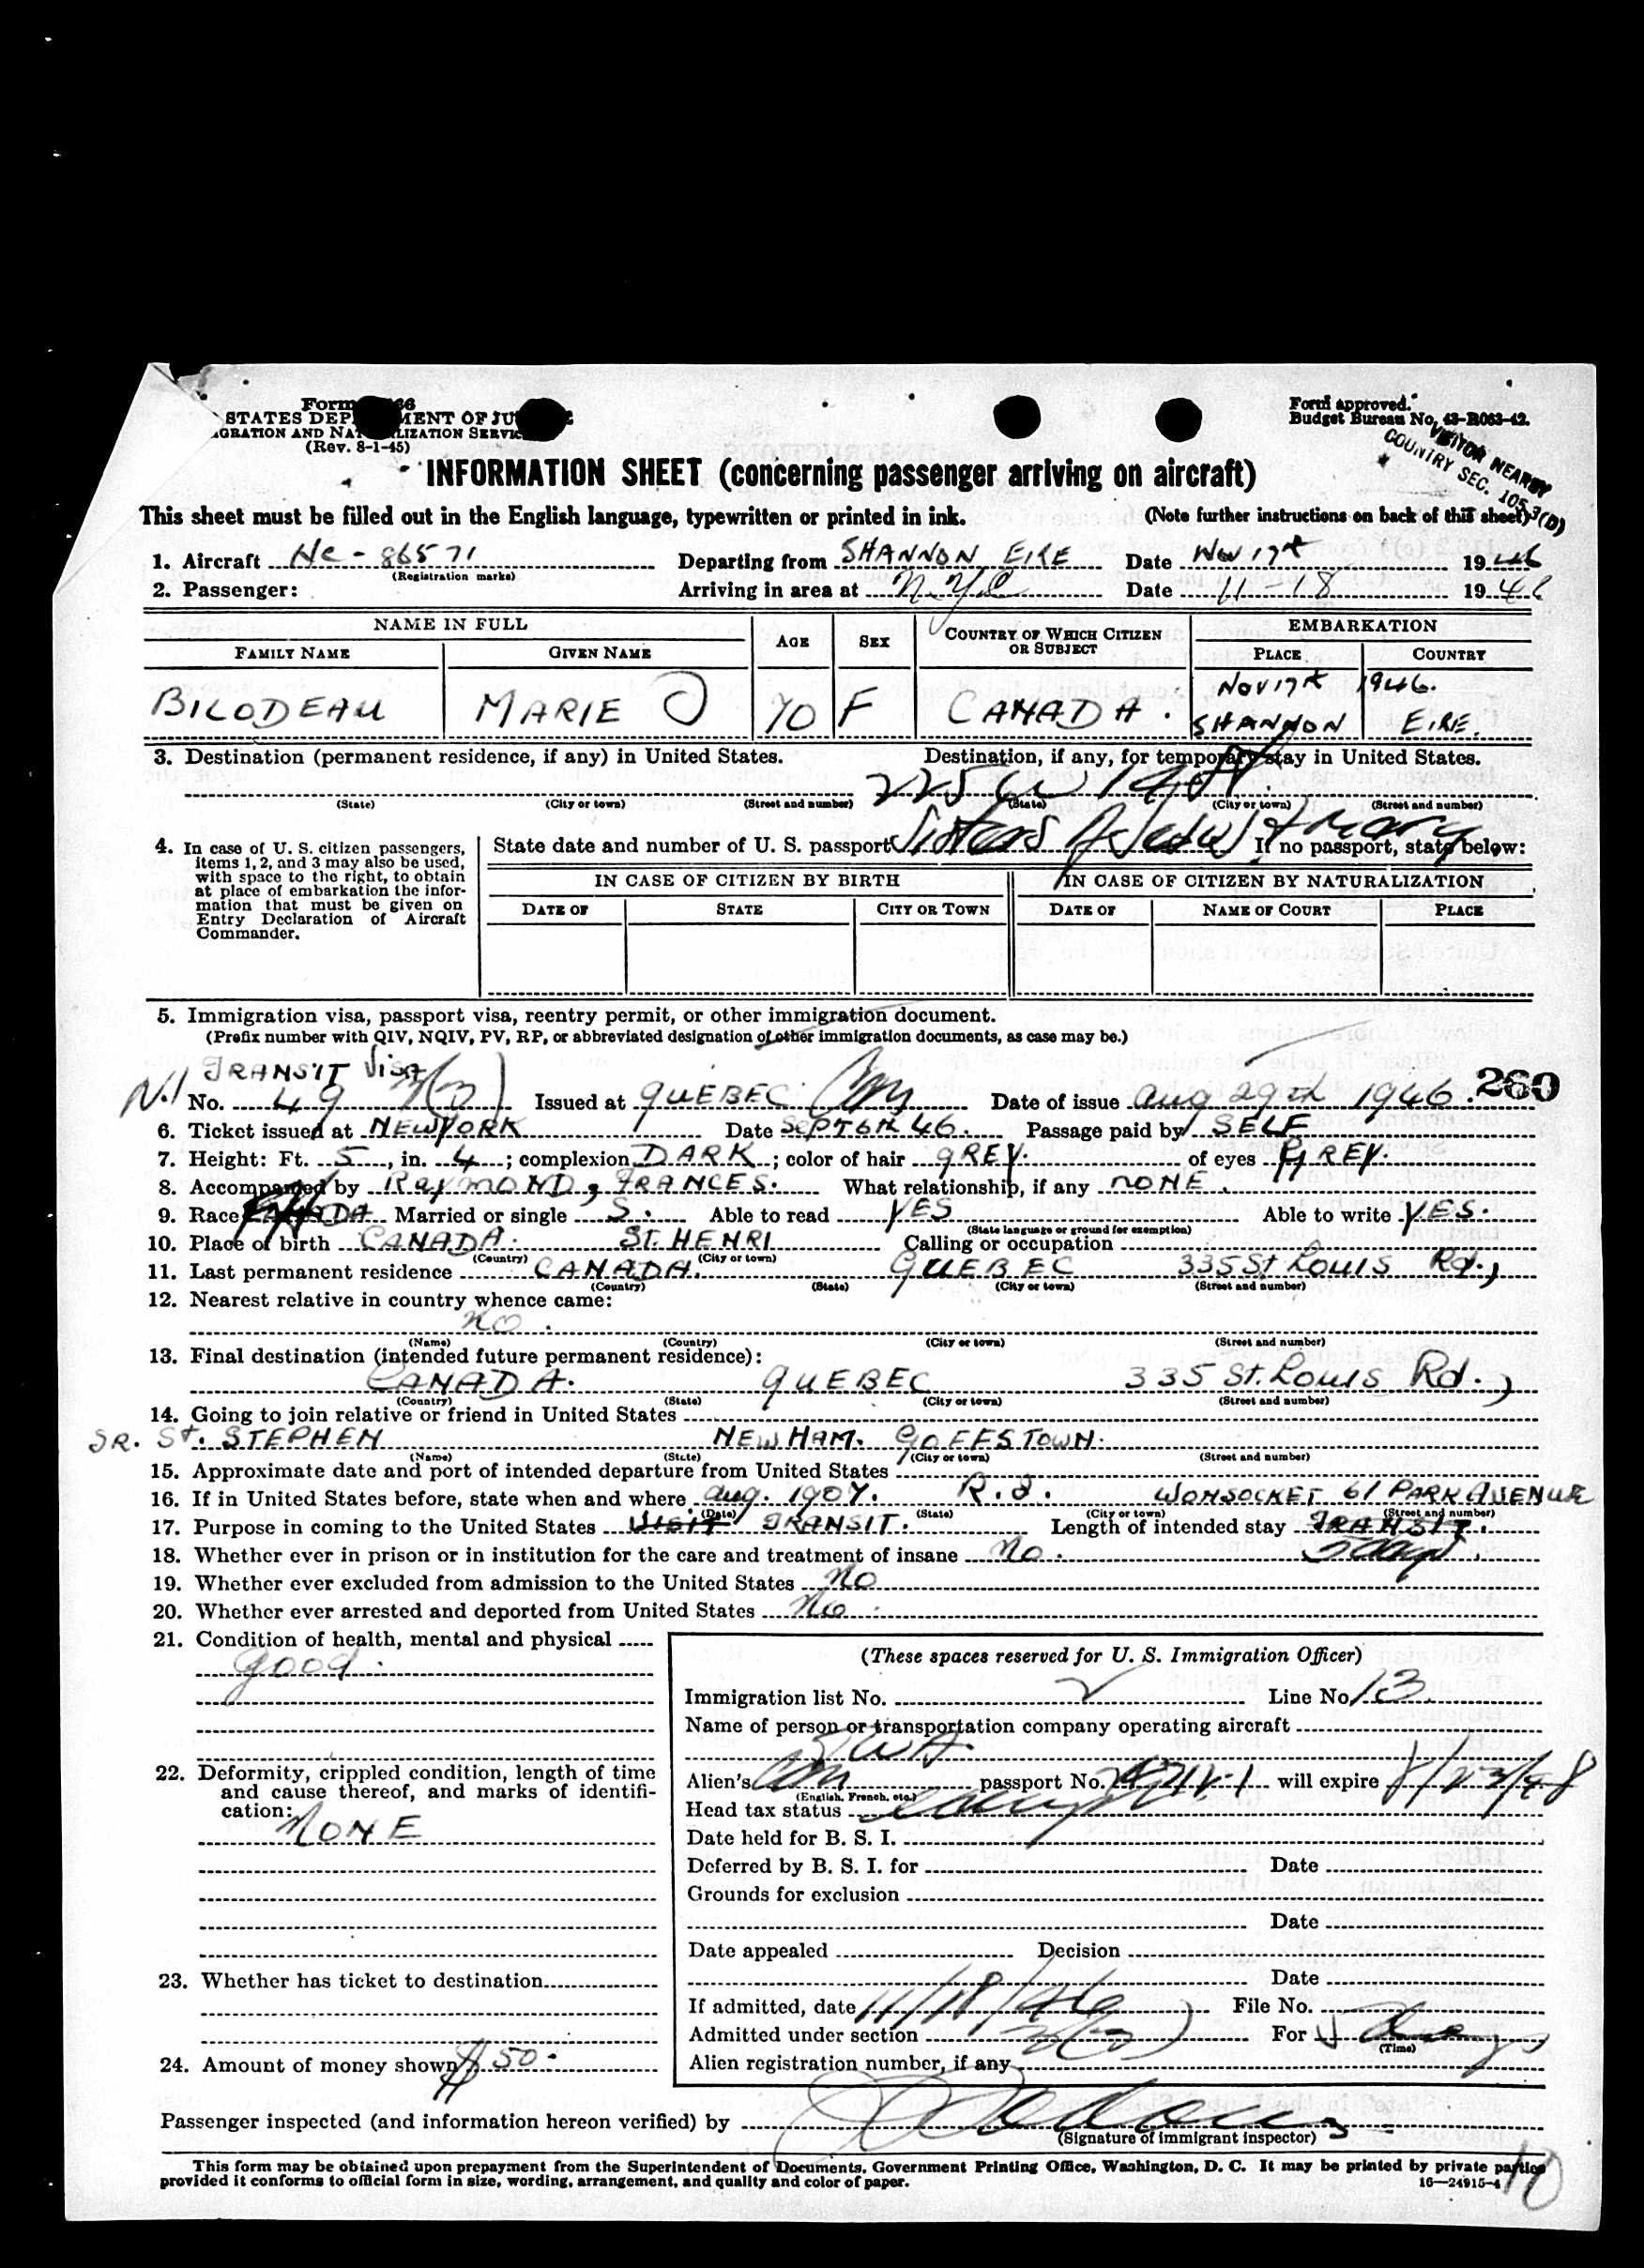 Form 66
STATES DEP MENT OF JU
GRATION AND NA LIZATION SERVIC
(Rev. 8-1-45)
Form approved.
Budget Bureau No. 43-R063-42.
VISITOR NEARBY
COUNTRY SEC. 105.3(D)
INFORMATION SHEET (concerning passenger arriving on aircraft)
This sheet must be filled out in the English language, typewritten or printed in ink. (Note further instructions on back of this sheet)
1. Aircraft Nc - 86571 Departing from SHANNON EIRE Date Nov 17th 1946
(Registration marks)
2. Passenger: Arriving in area at N.Y.C Date 11-18 1946
NAME IN FULL AGE SEX COUNTRY OF WHICH CITIZEN OR SUBJECT EMBARKATION
FAMILY NAME GIVEN NAME PLACE COUNTRY
Nov 17th 1946.
BILODEAU MARIE O 70 F CANADA. SHANNON EIRE.
3. Destination (permanent residence, if any) in United States. Destination, if any, for temporary stay in United States.
225 W 14th
(State) (City or town) (Street and number) (State) (City or town) (Street and number)
Sisters of Jesus & Mary
4. In case of U. S. citizen passengers, items 1, 2, and 3 may also be used, with space to the right, to obtain at place of embarkation the information that must be given on Entry Declaration of Aircraft Commander.
State date and number of U. S. passport If no passport, state below:
IN CASE OF CITIZEN BY BIRTH IN CASE OF CITIZEN BY NATURALIZATION
DATE OF STATE CITY OR TOWN DATE OF NAME OF COURT PLACE
5. Immigration visa, passport visa, reentry permit, or other immigration document.
(Prefix number with QIV, NQIV, PV, RP, or abbreviated designation of other immigration documents, as case may be.)
TRANSIT Visa
No. 49 3(3) Issued at QUEBEC Date of issue Aug 29th 1946. 260
6. Ticket issued at NEWYORK Date SEPT 6th 46. Passage paid by SELF
7. Height: Ft. 5, in. 4; complexion DARK; color of hair GREY. of eyes GREY.
8. Accompanied by RayMOND, FRANCES. What relationship, if any NONE.
9. Race CANADA Married or single S. Able to read YES Able to write YES.
(State language or ground for exemption)
10. Place of birth CANADA. ST. HENRI Calling or occupation
(Country) (City or town)
11. Last permanent residence CANADA. QUEBEC 335 St Louis Rd.,
(Country) (State) (City or town) (Street and number)
12. Nearest relative in country whence came:
No.
(Name) (Country) (City or town) (Street and number)
13. Final destination (intended future permanent residence):
CANADA. QUEBEC 335 St. Louis Rd.,
(Country) (State) (City or town) (Street and number)
14. Going to join relative or friend in United States
SR. St. STEPHEN NEW HAM. GOFFSTOWN.
(Name) (State) (City or town) (Street and number)
15. Approximate date and port of intended departure from United States
16. If in United States before, state when and where Aug. 1907. R.I. WONSOCKET 61 PARK AVENUE
(Date) (State) (City or town) (Street and number)
17. Purpose in coming to the United States VISIT TRANSIT. Length of intended stay TRANSIT.
18. Whether ever in prison or in institution for the care and treatment of insane No. 5 days.
19. Whether ever excluded from admission to the United States No
20. Whether ever arrested and deported from United States No.
21. Condition of health, mental and physical
good.
(These spaces reserved for U. S. Immigration Officer)
Immigration list No. 2 Line No. 13
Name of person or transportation company operating aircraft
TWA.
22. Deformity, crippled condition, length of time and cause thereof, and marks of identification:
NONE
Alien's Can passport No. will expire 8/23/48
(English, French, etc.)
Head tax status
Date held for B. S. I.
Deferred by B. S. I. for Date
Grounds for exclusion
Date
Date appealed Decision
23. Whether has ticket to destination
Date
If admitted, date 11/18/46 File No.
Admitted under section 3(3) For 5 days
(Time)
24. Amount of money shown $50.
Alien registration number, if any
Passenger inspected (and information hereon verified) by
(Signature of immigrant inspector)
This form may be obtained upon prepayment from the Superintendent of Documents, Government Printing Office, Washington, D. C. It may be printed by private parties
provided it conforms to official form in size, wording, arrangement, and quality and color of paper. 16—24915-4
10